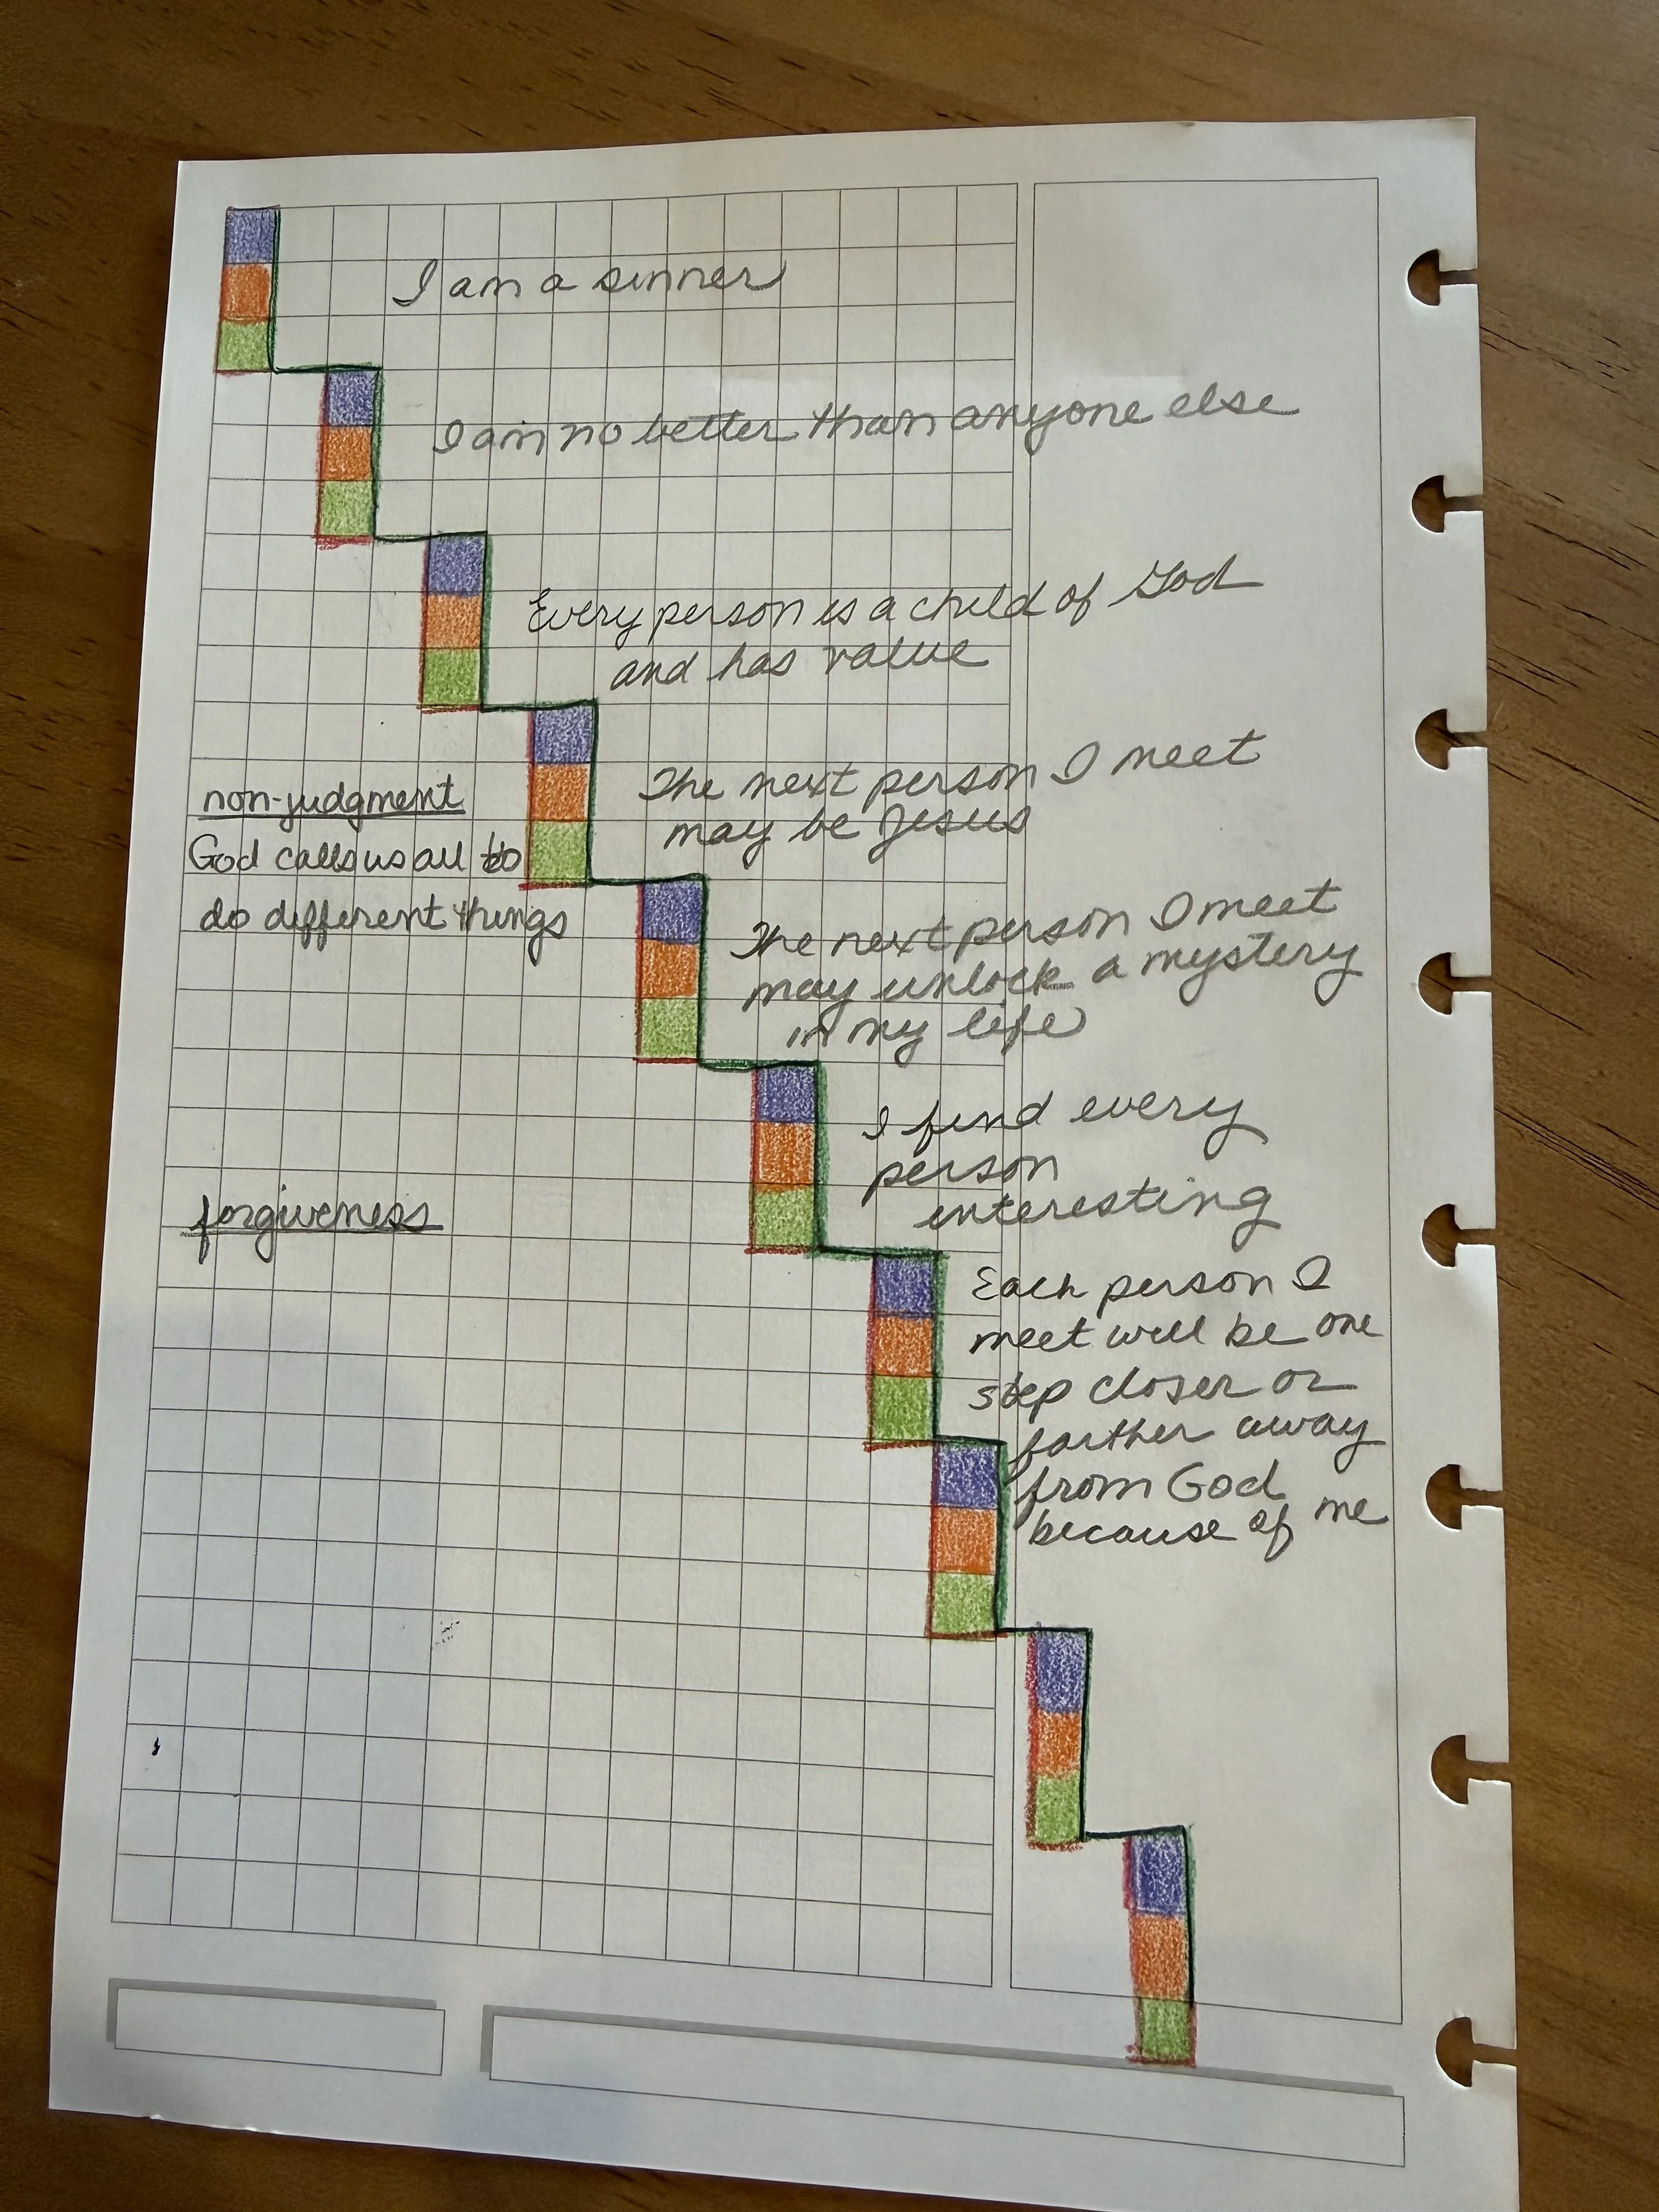 I am a sinner
I am no better than anyone else
Every person is a child of God
and has value
The next person I meet
may be Jesus
non-judgment
God calls us all to
do different things
The next person I meet
may unlock a mystery
in my life
I find every
person
interesting
forgiveness
Each person I
meet will be one
step closer or
farther away
from God
because of me